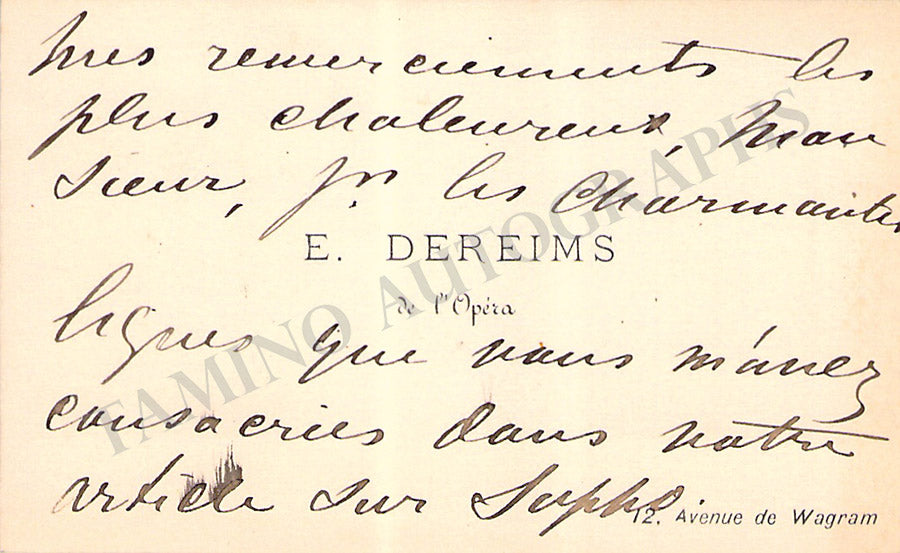 mes remerciements les
plus chaleureux, Mon
sieur, pr les charmantes
E. DEREIMS
de l'Opéra
lignes que vous m'avez
consacrées dans votre
article sur Sapho
12, Avenue de Wagram
FAMINO AUTOGRAPHS